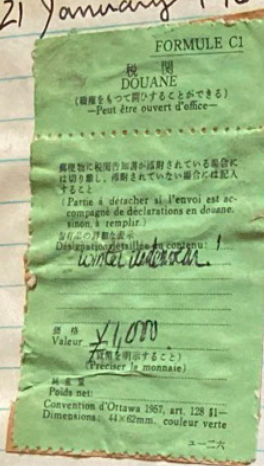 21 January
FORMULE C1
税 関
DOUANE
(職権をもつて開ひすることができる)
—Peut être ouvert d'office—
郵便物に税関告知書が添附されている場合に
は切り離し、添附されていない場合には記入
すること
(Partie à détacher si l'envoi est ac-
compagné de déclarations en douane.
sinon, à remplir.)
内容品の詳細な表示
Désignation détaillée du contenu:
winter underwear!
価 格
Valeur ¥1,000
(貨幣を明示すること)
(Préciser la monnaie)
純重量
Poids net:
Convention d'Ottawa 1957, art. 128 §1—
Dimensions: 44×62mm, couleur verte
ユ—二六